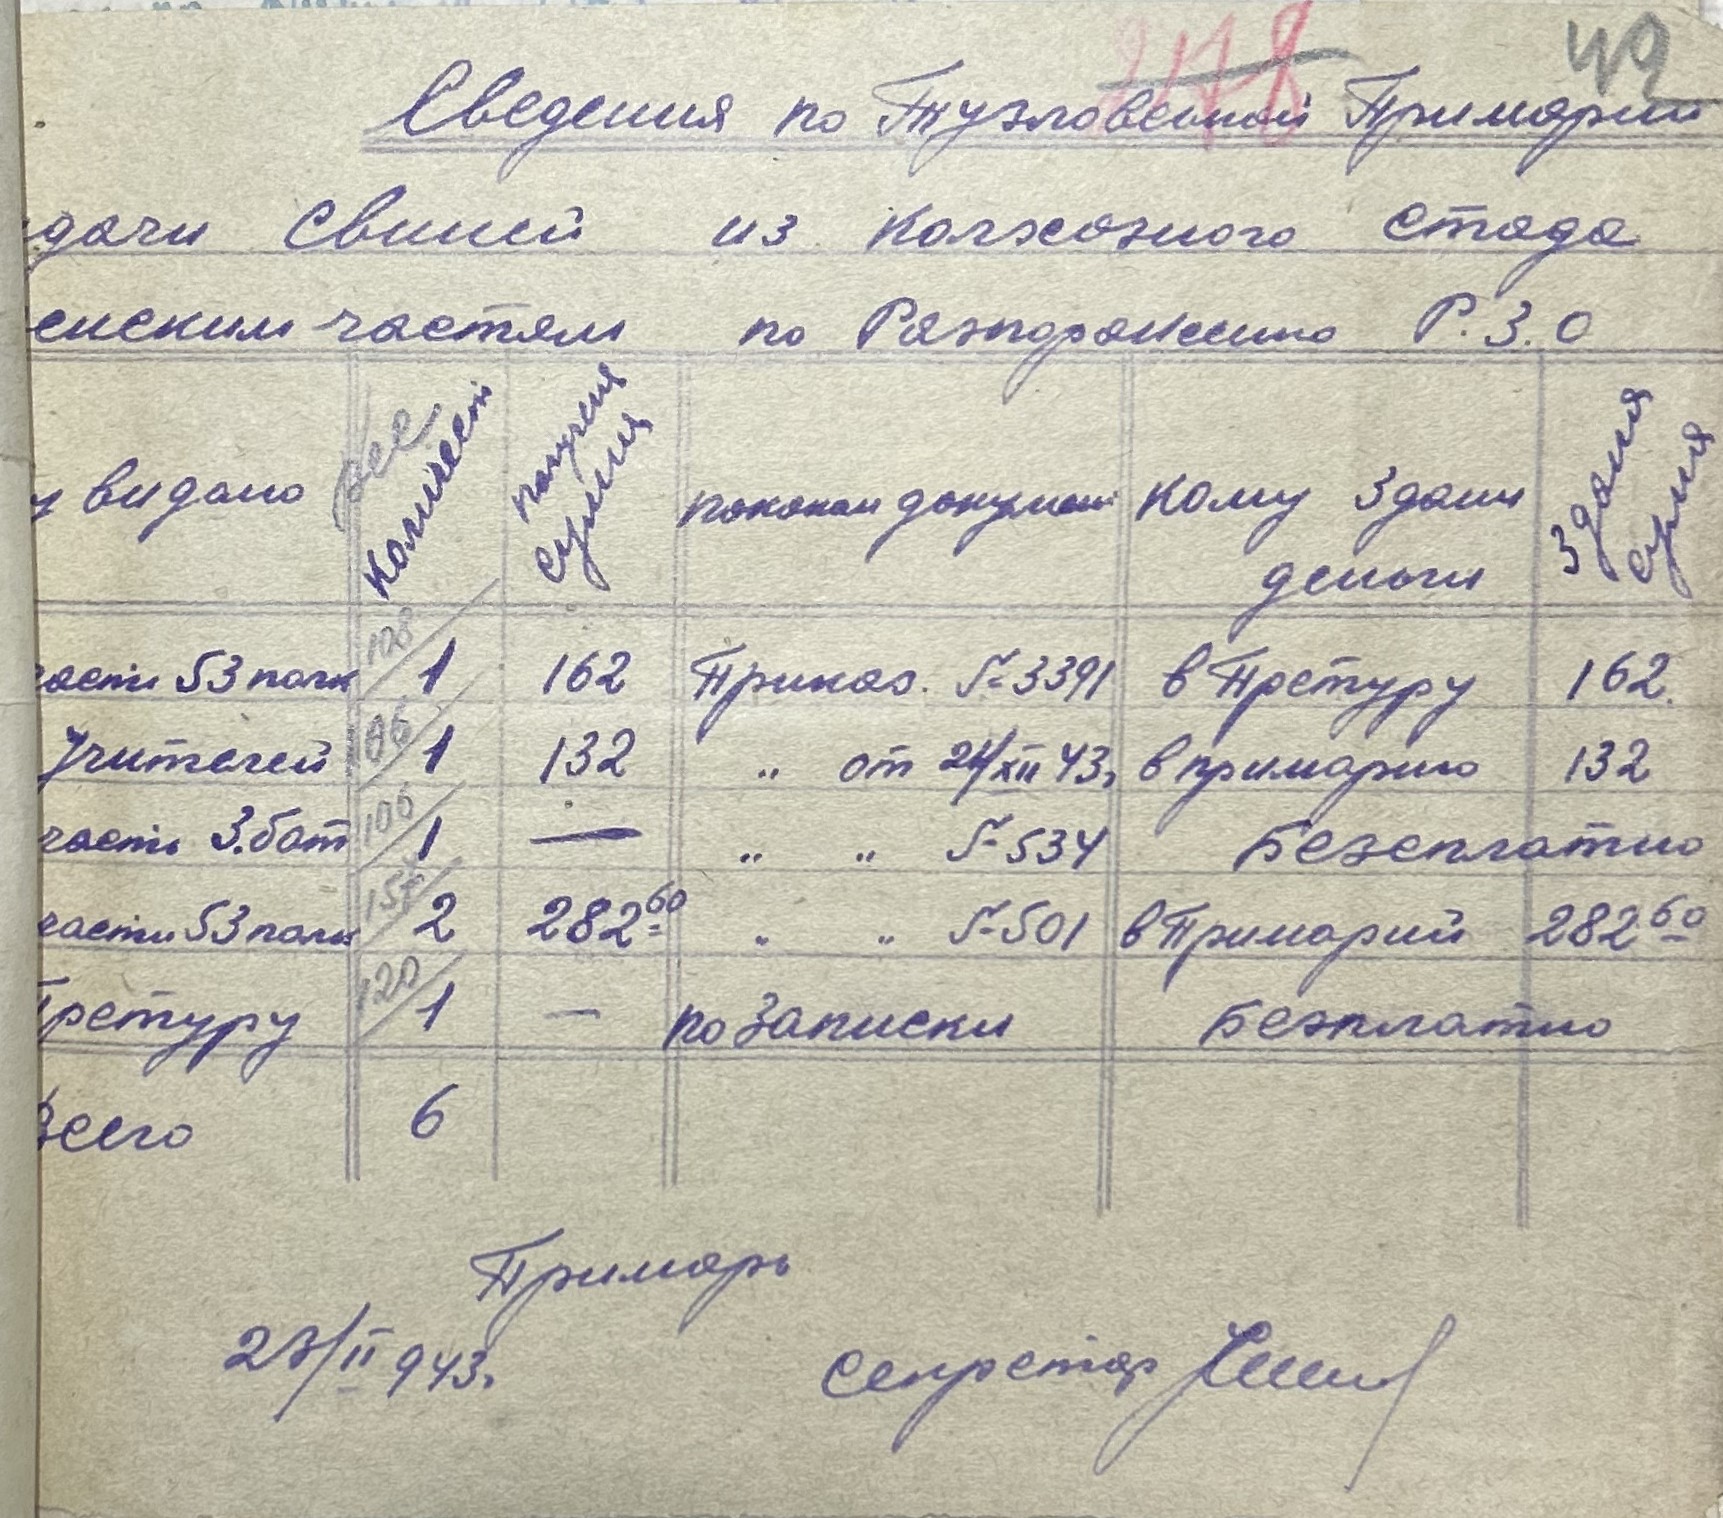 49
Сведения по Тузловской Примарии
дачи Свиней из колхозного стада
енским частям по Разпоражению Р.З.О
у видано вес Количест получения сумия пококам докумен кому Здани деньги Здания сумия
части 53 полк 108 1 162 Приказ. № 3391 в Претуру 162.
Учителей 106 1 132 " от 24/XII 43г в примарию 132
часть 3.бат 106 1 — " " № 534 Безсплатно
части 53 полк 2 282 60 " " № 501 в Примарий 282 60
Претуру 120 1 — по Записки Безплатно
Всего 6
Примарь
27/II 943г.
секретар